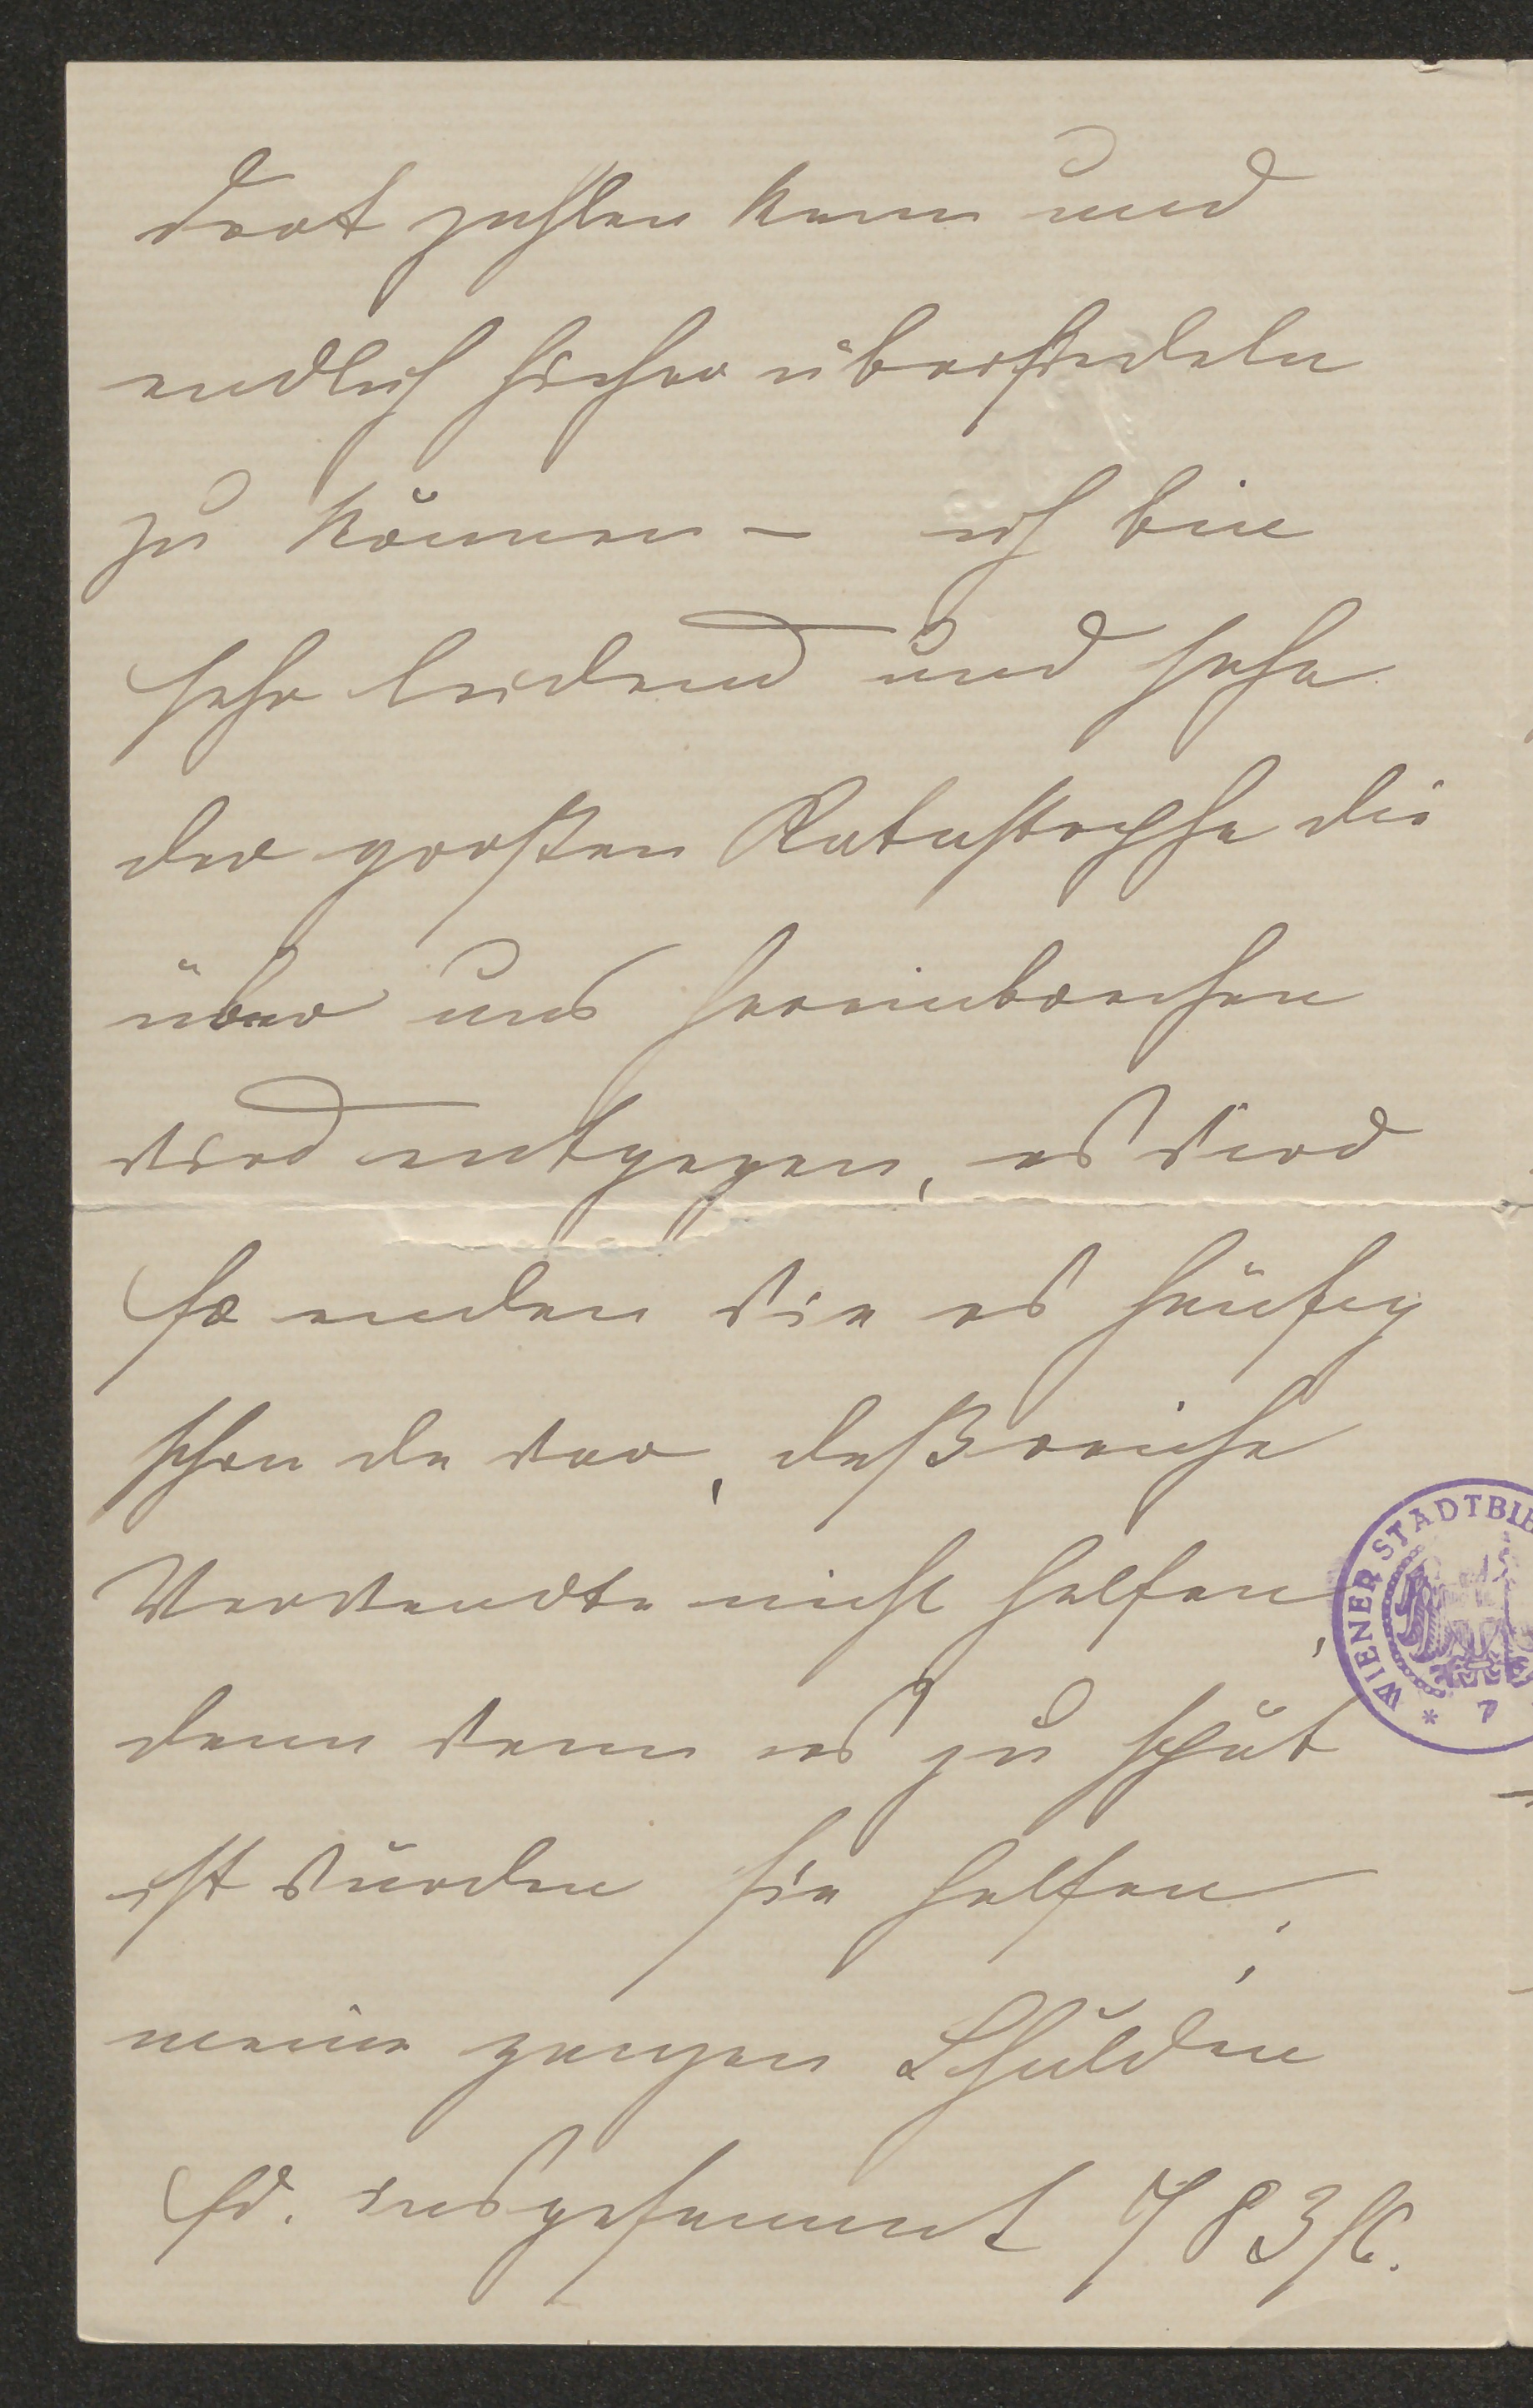 dort zahlen kann und
endlich hieher übersiedeln
zu können – ich bin
sehr leidend und sehe
der großen Katastrophe die
über uns hereinbrechen
wird entgegen, es wird
so enden wie es häufig
schon da war, daß reiche
Verwandte nicht helfen,
denn wenn es zu spät
ist würden sie helfen,
meine ganzen Schulden
sd. insgesammt 783 fl.
WIENER STADTBIB
* 7